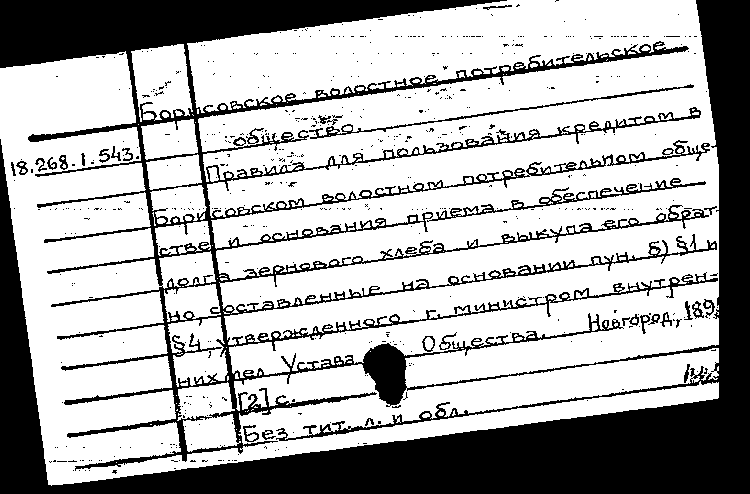 Борисовское волостное потребительское
общество.
18.268.1.543.
Правила для пользования кредитом в
Борисовском волостном потребительном обще-
стве и основания приема в обеспечение
долга зернового хлеба и выкупа его обрат-
но, составленные на основании пун. б) §1 и
§4, утвержденного г. министром внутрен-
них дел Устава Общества. Новгород, 189
[2] с.
Без тит. л. и обл.